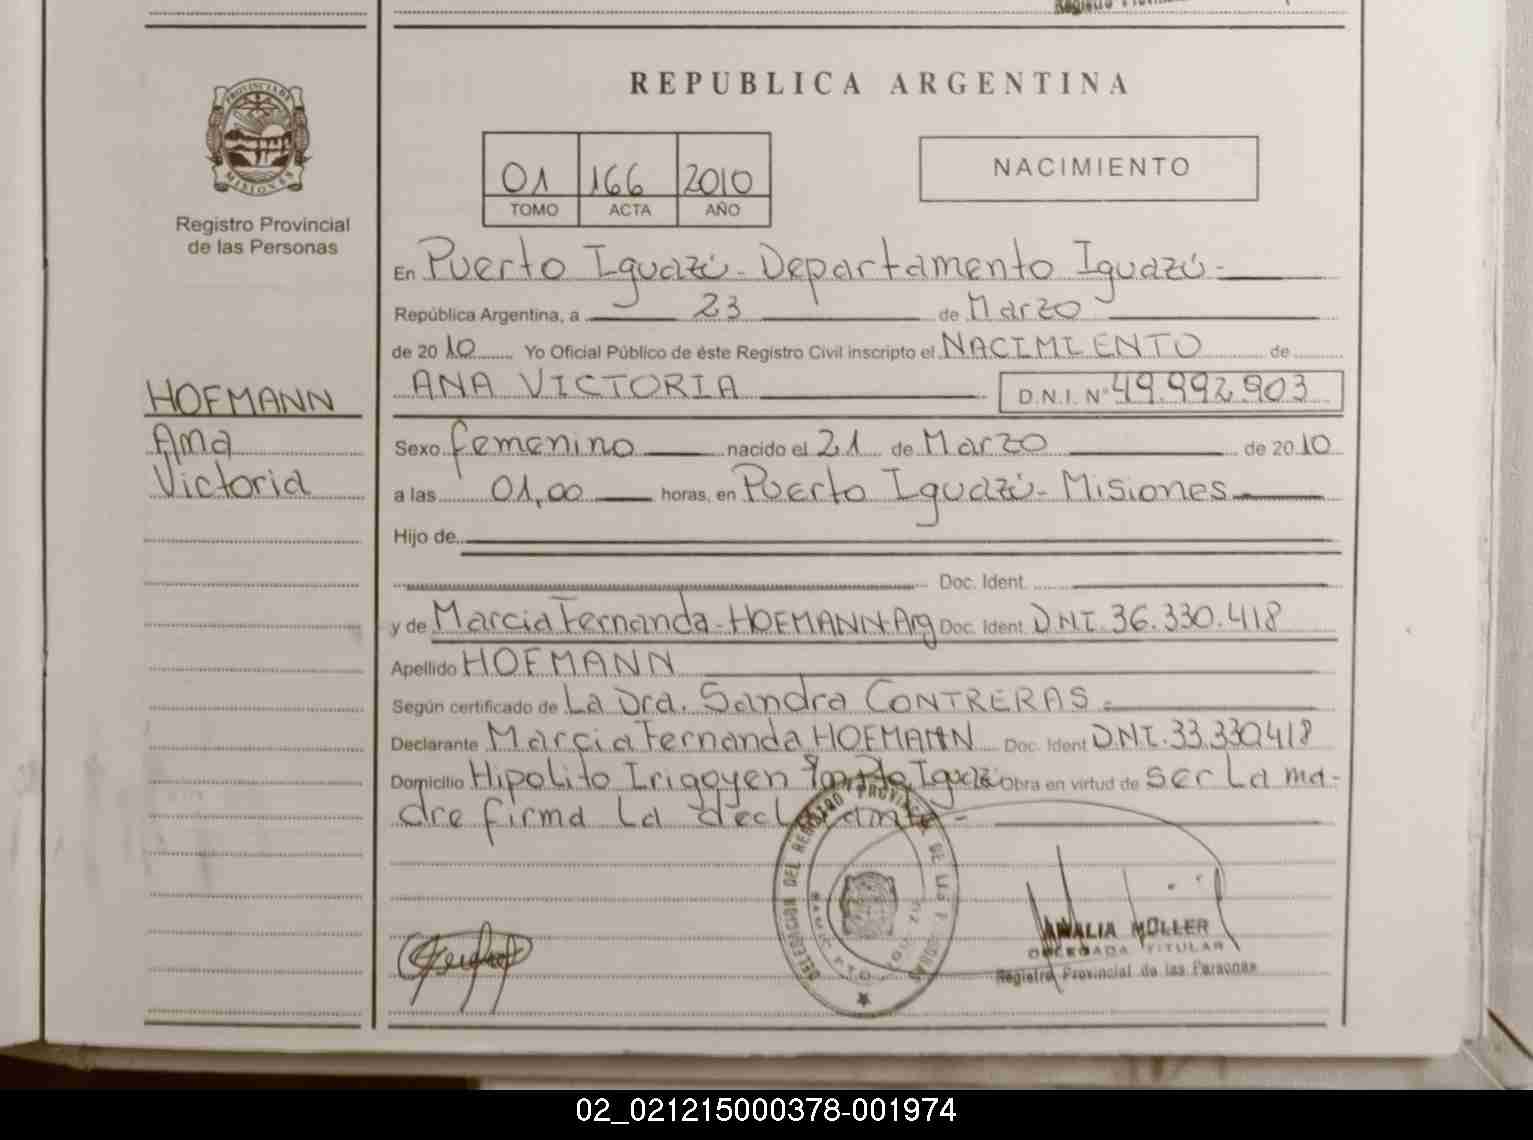 REPUBLICA ARGENTINA
PROVINCIA DE
MISIONES
Registro Provincial
de las Personas
01 166 2010
TOMO ACTA AÑO
NACIMIENTO
En Puerto Iguazú - Departamento Iguazú -
República Argentina, a 23 de Marzo
de 20 10 Yo Oficial Público de éste Registro Civil inscripto el NACIMIENTO de
ANA VICTORIA D.N.I. N° 49.992.903
HOFMANN
Ana
Victoria
Sexo femenino nacido el 21 de Marzo de 20 10
a las 01,00 horas, en Puerto Iguazú - Misiones
Hijo de
Doc. Ident.
y de Marcia Fernanda - HOFMANN Arg Doc. Ident. D.N.I. 36.330.418
Apellido HOFMANN
Según certificado de La Dra. Sandra CONTRERAS
Declarante Marcia Fernanda HOFMANN Doc. Ident D.N.I. 33.330418
Domicilio Hipolito Irigoyen Iguazú Obra en virtud de ser La ma-
dre firma La declarante -
DELEGACION DEL REGISTRO PROVINCIAL DE LAS PERSONAS
AMALIA MÜLLER
DELEGADA TITULAR
Registro Provincial de las Personas
02_021215000378-001974